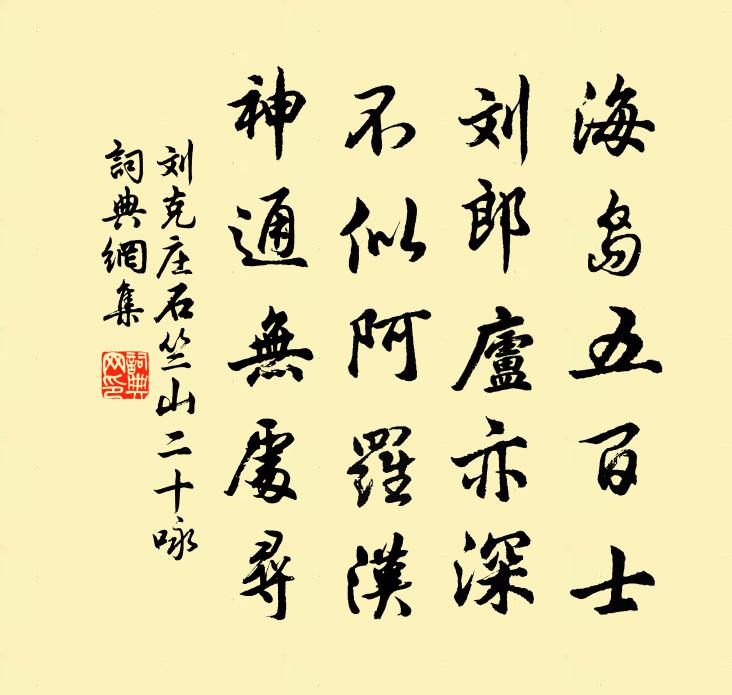 海岛五百士
刘郎廬亦深
不似阿羅漢
神通無處尋
刘克庄石竺山二十咏
詞典網集
詞典网印